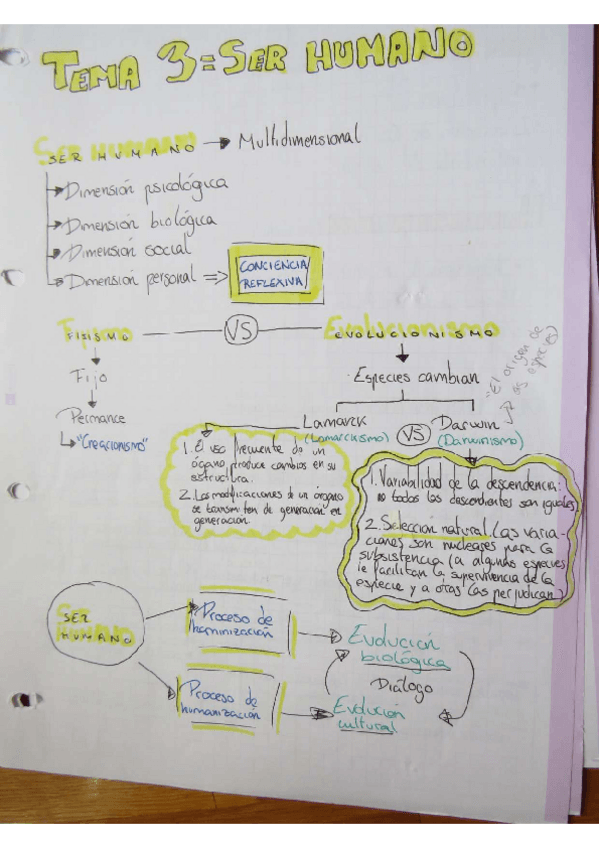 TEMA 3 = SER HUMANO
SER HUMANO → Multidimensional
Dimensión psicológica
Dimensión biológica
Dimensión social
Dimensión personal ⇒
CONCIENCIA
REFLEXIVA
FIJISMO
VS
EVOLUCIONISMO
Fijo
Permance
"Creacionismo"
Especies cambian
"El origen de
las especies"
Lamarck
(Lamarckismo)
VS
Darwin
(Darwinismo)
1. El uso frecuente de un
órgano produce cambios en su
estructura.
2. Las modificaciones de un órgano
se transmiten de generación en
generación.
1. Variabilidad de la descendencia:
no todos los descendientes son iguales
2. Selección natural. Las varia-
ciones son
para la
subsistencia (a algunas especies
le facilitan la supervivencia de la
especie y a otras las perjudican)
SER
HUMANO
Proceso de
hominización
Evolución
biológica
Diálogo
Proceso de
humanización
Evolución
cultural